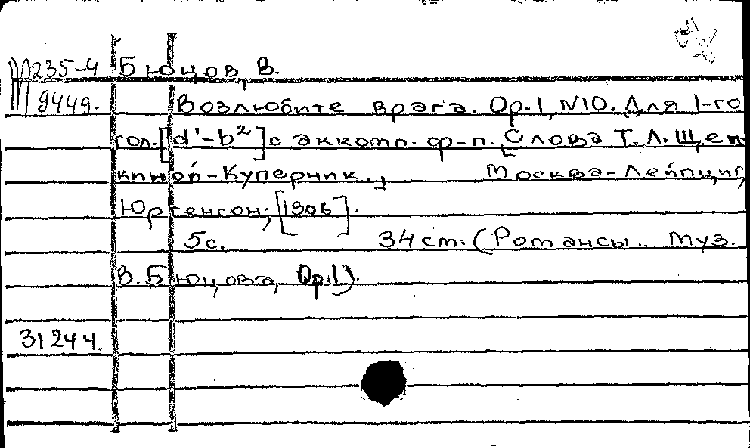 М235-4 Бюцов, В.
9449. Возлюбите врага. Ор.1, №10. Для 1-го
гол. [d'-b²] с аккомп. ф-п. Слова Т.Л. Щеп-
киной-Куперник., Москва-Лейпциг,
Юргенсон, [1906].
5с. 34 cm. (Романсы.. Муз.
В. Бюцова, Ор.1).
31244.